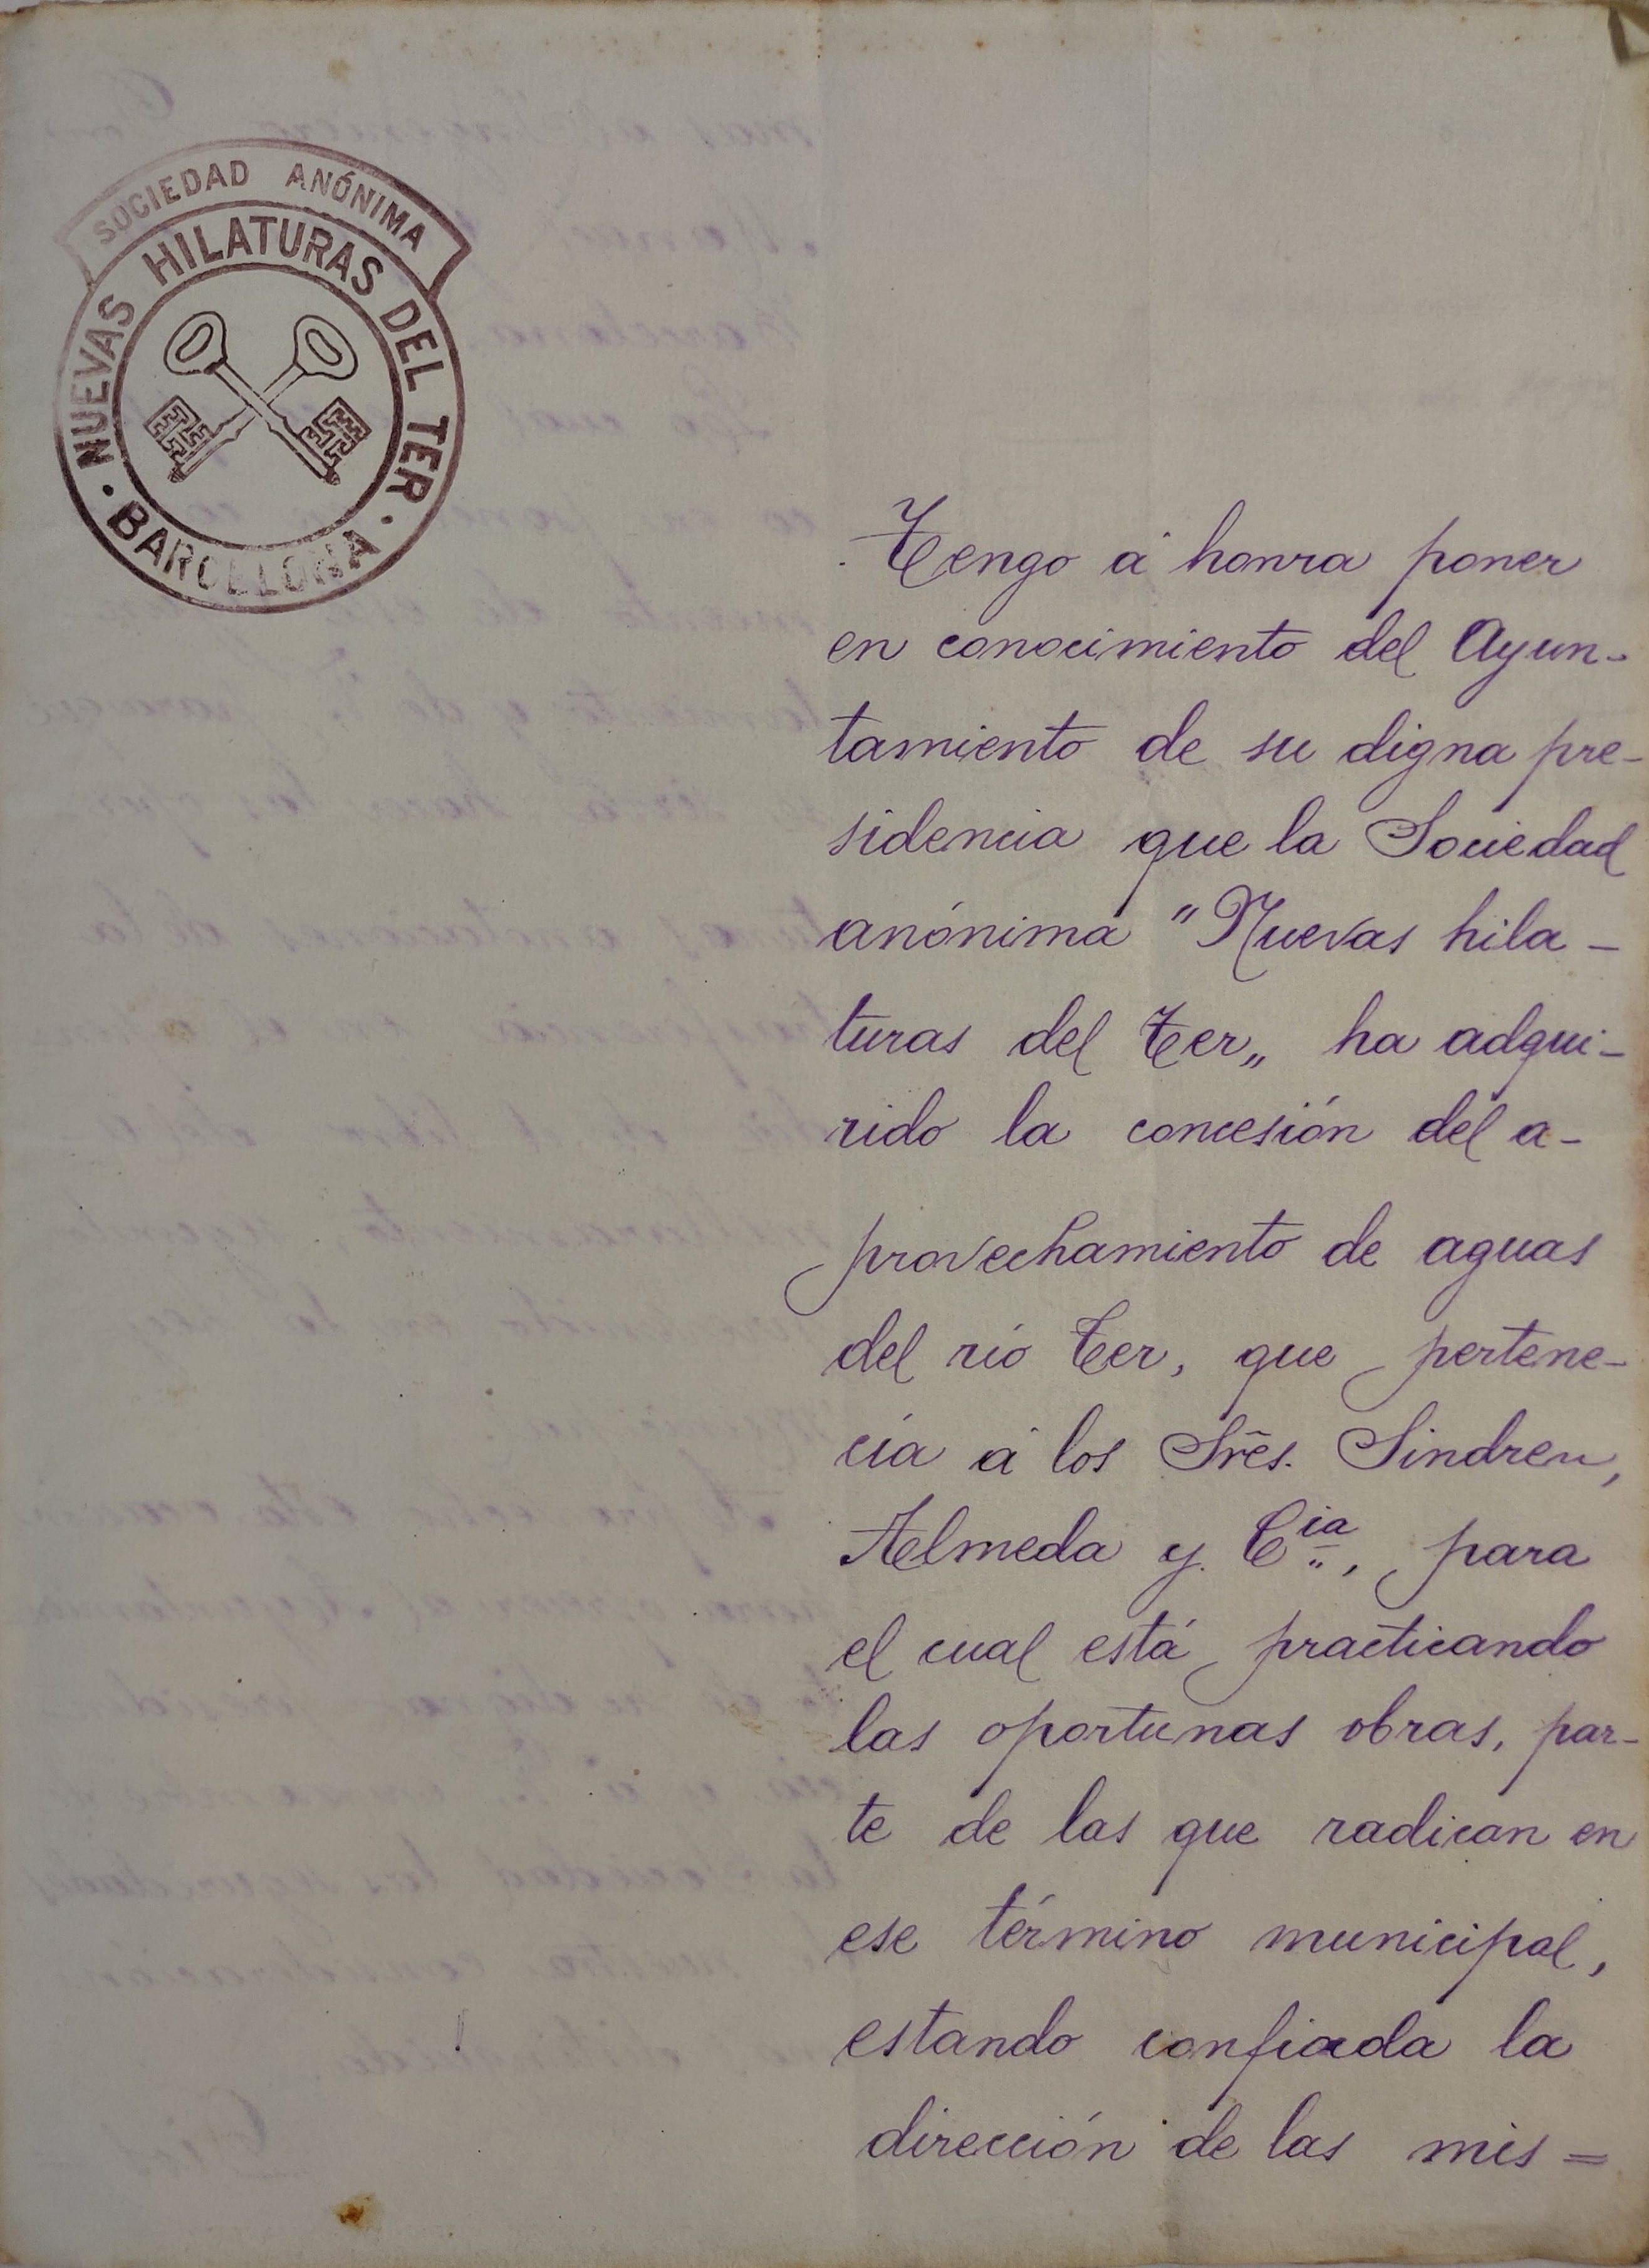 SOCIEDAD ANÓNIMA
NUEVAS HILATURAS DEL TER
· BARCELONA ·
Tengo á honra poner
en conocimiento del Ayun-
tamiento de su digna pre-
sidencia que la Sociedad
anónima "Nuevas hila-
turas del Ter„ ha adqui-
rido la concesión del a-
provechamiento de aguas
del rio Ter, que pertene-
cia á los Srēs. Sindreu,
Almeda y Cia, para
el cual está practicando
las oportunas obras, par-
te de las que radican en
ese término municipal,
estando confiada la
dirección de las mis=